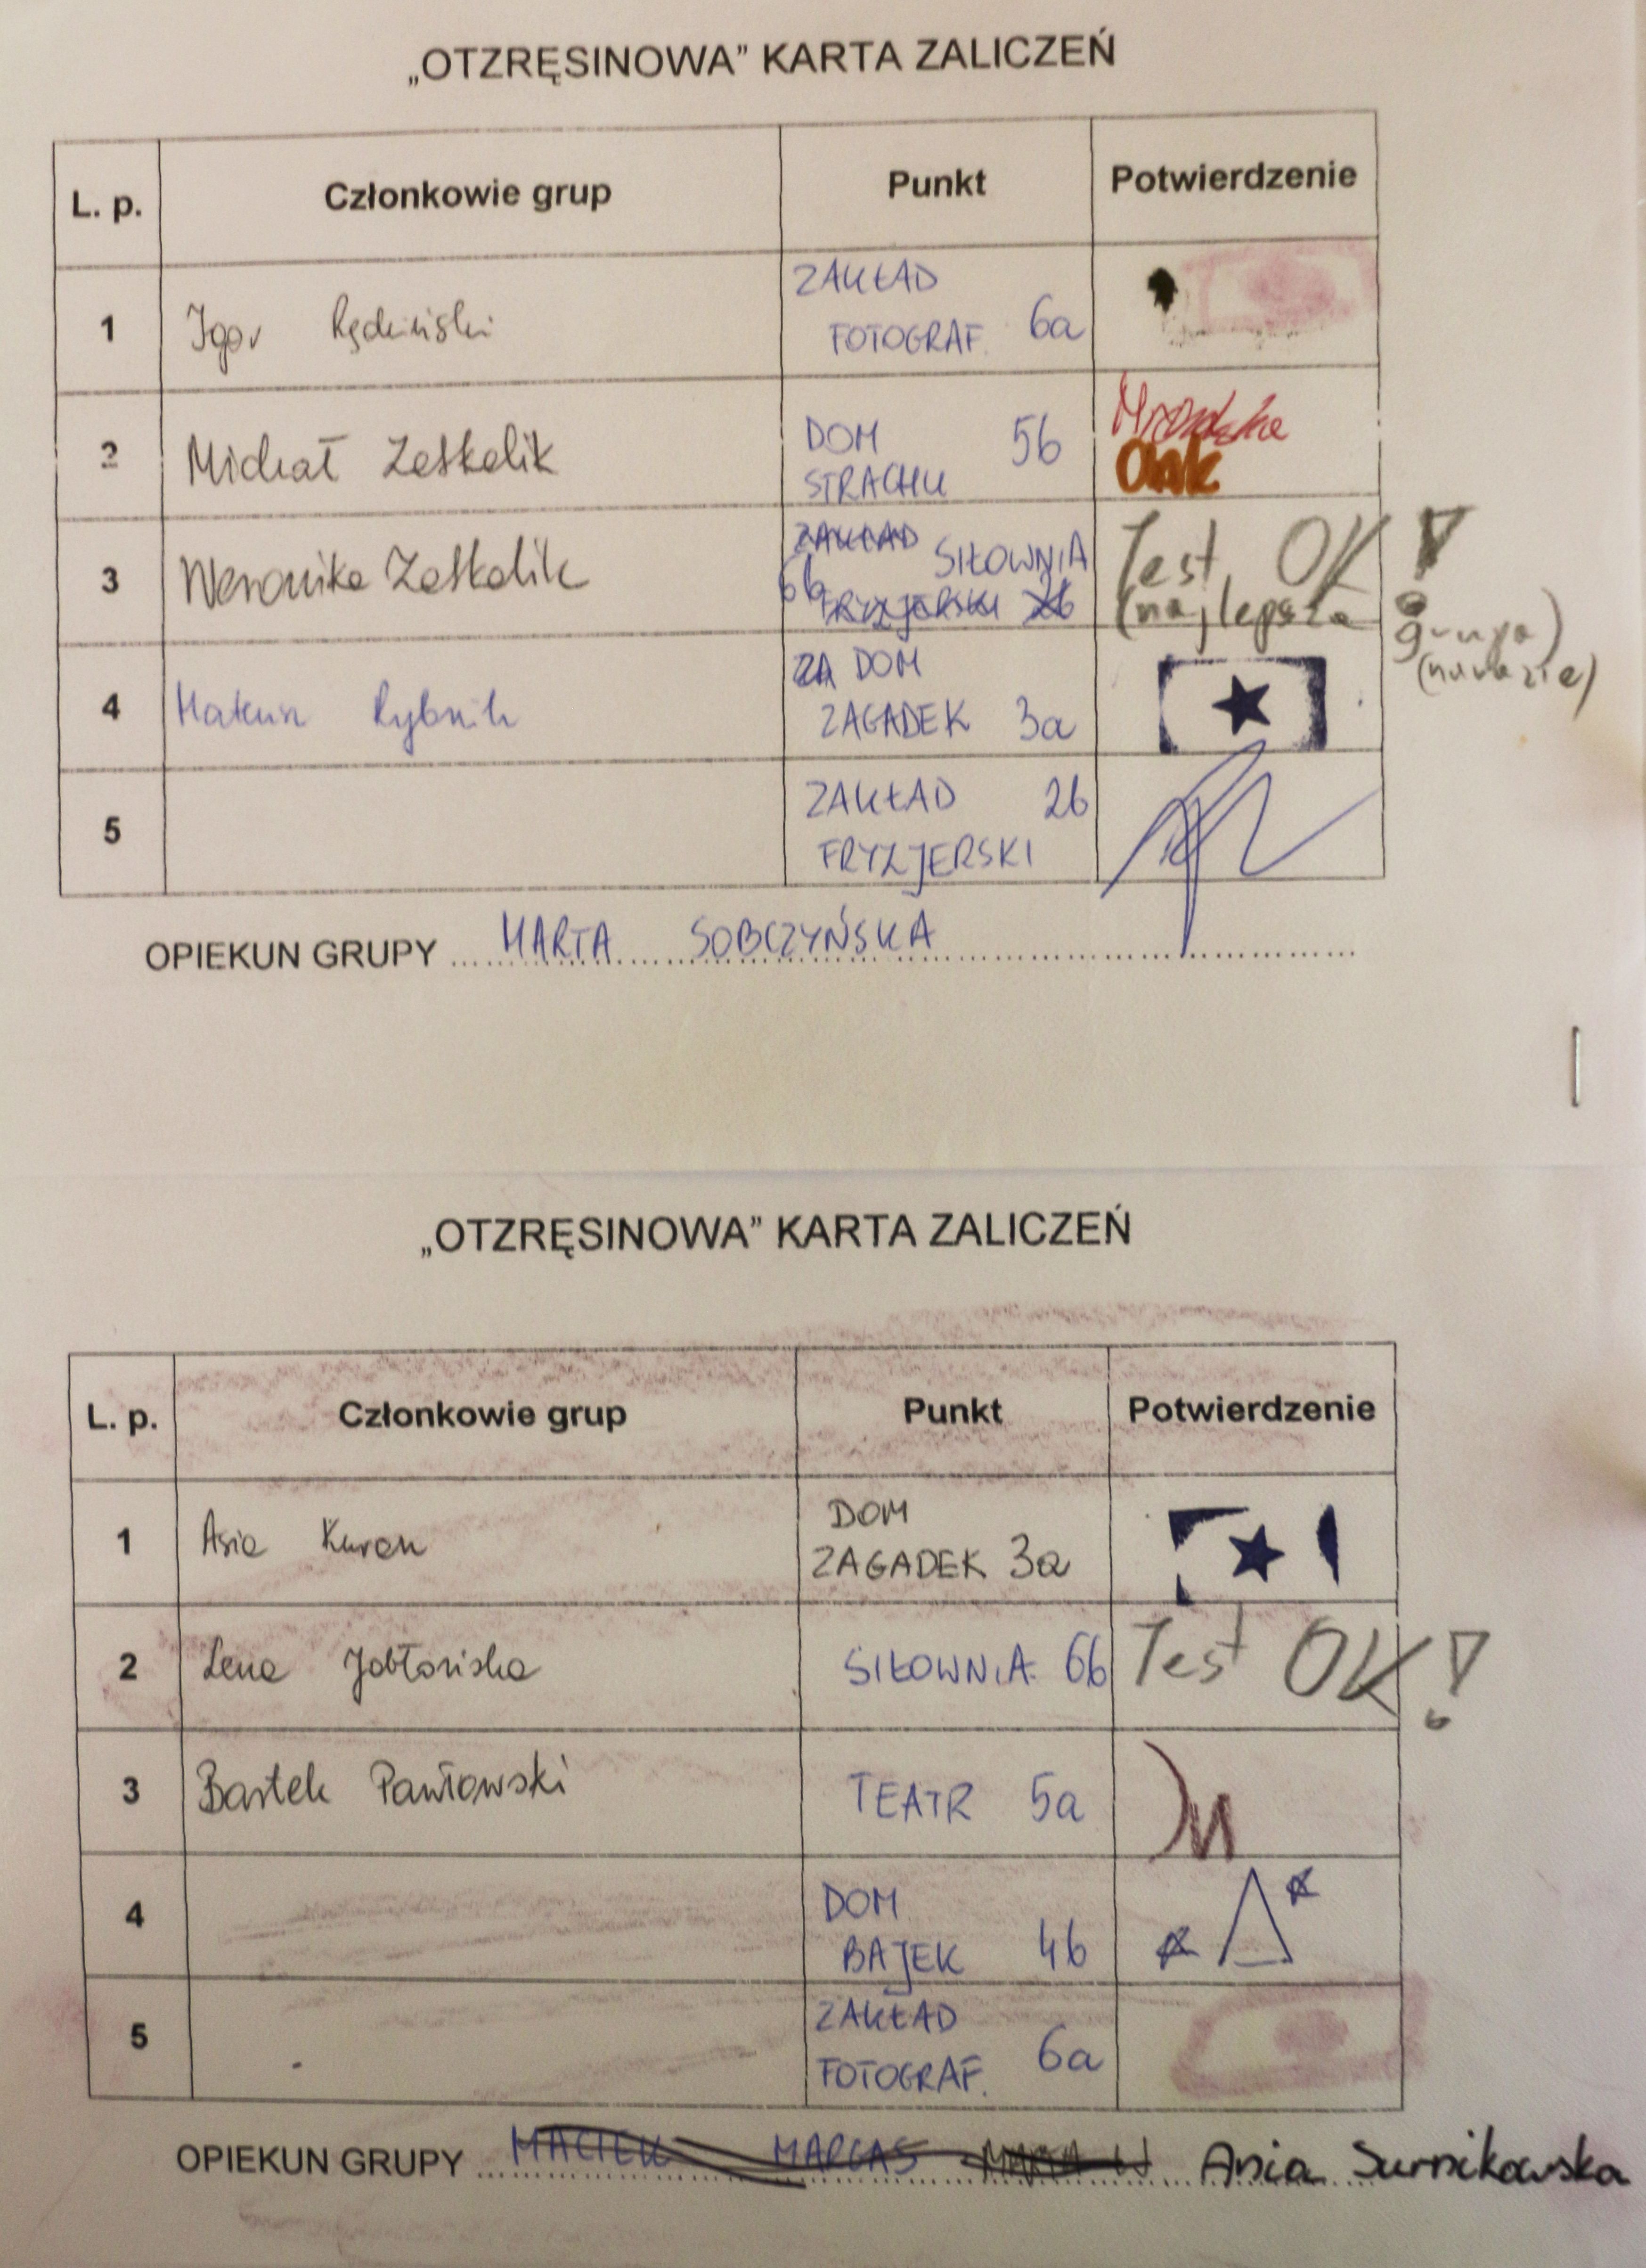 „OTZRĘSINOWA” KARTA ZALICZEŃ
L. p. Członkowie grup Punkt Potwierdzenie
1 Igor ZAKŁAD
FOTOGRAF. 6a
2 Michał Zetkalik DOM 5b
STRACHU
3 Weronika Zetkalik SIŁOWNIA Test OK!
6b (najlepsza grupa)
(na razie)
4 Mateusz Rybnik DOM
ZAGADEK 3a
5 ZAKŁAD 2b
FRYZJERSKI
OPIEKUN GRUPY MARTA SOBCZYŃSKA
„OTZRĘSINOWA” KARTA ZALICZEŃ
L. p. Członkowie grup Punkt Potwierdzenie
1 Asia Kuran DOM
ZAGADEK 3a
2 Lena Jabłońska SIŁOWNIA 6b Test OK!
3 Bartek Pawłowski TEATR 5a
4 DOM
BAJEK 4b
5 ZAKŁAD
FOTOGRAF. 6a
OPIEKUN GRUPY MACIEK MARGAS Ania Surnikowska